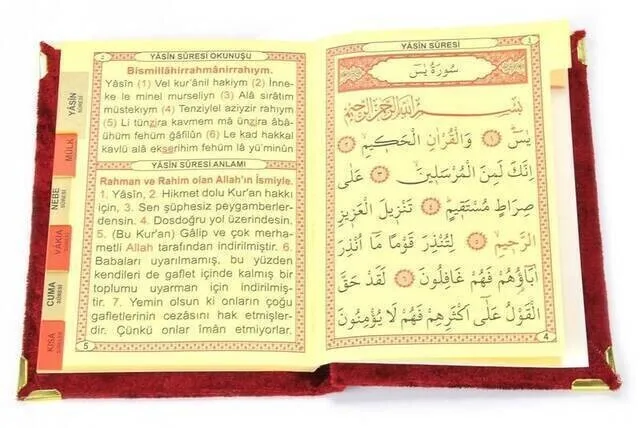 YÂSİN SÛRESİ OKUNUŞU
Bismillâhirrahmânirrahıym.
Yâsîn (1) Vel kur'ânil hakiym (2) İnne-
ke le minel murseliyn (3) Alâ sirâtim
müstekıym (4) Tenziylel aziyzir rahıym
(5) Li tünzira kavmem mâ ünzira âbâ-
ühüm fehüm ğâfilûn (6) Le kad hakkal
kavlü alâ ekserihim fehüm lâ yü'minûn
YÂSİN SÛRESİ ANLAMI
Rahman ve Rahim olan Allah'ın İsmiyle.
1. Yâsîn, 2. Hikmet dolu Kur'an hakkı
için, 3. Sen şüphesiz peygamberler-
densin. 4. Dosdoğru yol üzerindesin.
5. (Bu Kur'an) Gâlip ve çok merha-
metli Allah tarafından indirilmiştir. 6.
Babaları uyarılmamış, bu yüzden
kendileri de gaflet içinde kalmış bir
toplumu uyarman için indirilmiş-
tir. 7. Yemin olsun ki onların çoğu
gafletlerinin cezasını hak etmişler-
dir. Çünkü onlar îmân etmiyorlar.
5
YÂSİN
SÛRESİ
MÜLK
NEBE
SÛRESİ
VAKIA
CUMA
SÛRESİ
KISA
SÛRELER
YÂSİN SÛRESİ
سُورَةُ يٰسٓ
بِسْمِ اللّٰهِ الرَّحْمٰنِ الرَّحٖيمِ
يٰسٓ ﴿١﴾ وَالْقُرْاٰنِ الْحَكٖيمِ ﴿٢﴾
اِنَّكَ لَمِنَ الْمُرْسَلٖينَ ﴿٣﴾ عَلٰى
صِرَاطٍ مُسْتَقٖيمٍ ﴿٤﴾ تَنْزٖيلَ الْعَزٖيزِ
الرَّحٖيمِ ﴿٥﴾ لِتُنْذِرَ قَوْمًا مَٓا اُنْذِرَ
اٰبَٓاؤُهُمْ فَهُمْ غَافِلُونَ ﴿٦﴾ لَقَدْ حَقَّ
الْقَوْلُ عَلٰٓى اَكْثَرِهِمْ فَهُمْ لَا يُؤْمِنُونَ
4